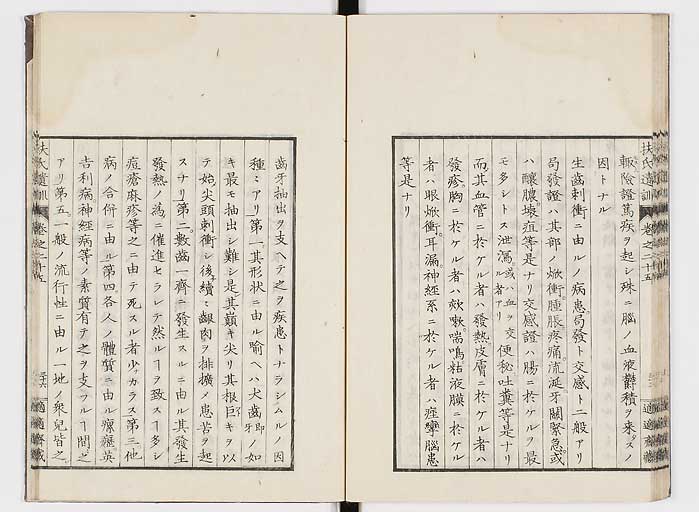 輙險證篤疾ヲ起シ殊ニ腦ノ血液欝積ヲ來スノ
因トナル
生齒刺衝ニ由ルノ病患局發ト交感ト二般アリ
局發證ハ其部ノ焮衝腫脹疼痛流涎牙關緊急或
ハ釀膿壞疽等是ナリ交感證ハ腸ニ於ケルヲ最
モ多シトス泄瀉或ハ血ヲ交ル者アリ便秘吐糞等是ナリ
而其血管ニ於ケル者ハ發熱皮膚ニ於ケル者ハ
發疹胸ニ於ケル者ハ欬嗽喘鳴粘液膜ニ於ケル
者ハ眼焮衝耳漏神經系ニ於ケル者ハ痙攣腦患
等是ナリ
扶氏遺訓 卷之二十五
適適齋藏
齒牙抽出ヲ支ヘテ之ヲ疾患トナラシムルノ因
種々アリ第一其形状ニ由ル喩ヘハ犬齒即牙ノ如
キ最モ抽出シ難シ是其巓キ尖リ其根巨キヲ以
テ始メ尖頭刺衝シ後續テ齦肉ヲ排擴メ患苦ヲ起
スナリ第二數齒一齊ニ發生スルニ由ル其發生
發熱ノ為ニ催進セラレテ然ルヿヲ致スヿ多シ
痘瘡麻疹等之ニ由テ死スル者少カラス第三他
病ノ合併ニ由ル第四各人ノ體質ニ由ル瘰癧英
吉利病神經病等ノ素質有テ之ヲ支フルヿ間之
アリ第五一般ノ流行性ニ由ル一地ノ衆兒皆之
扶氏遺訓 卷之二十五
三十六
適適齋藏